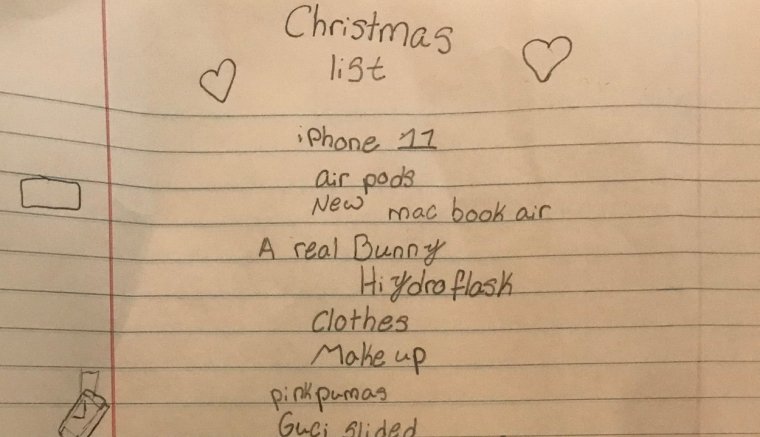 Christmas
list
iPhone 11
air pods
New mac book air
A real Bunny
Hiydroflask
Clothes
Make up
pink pumas
Guci slided